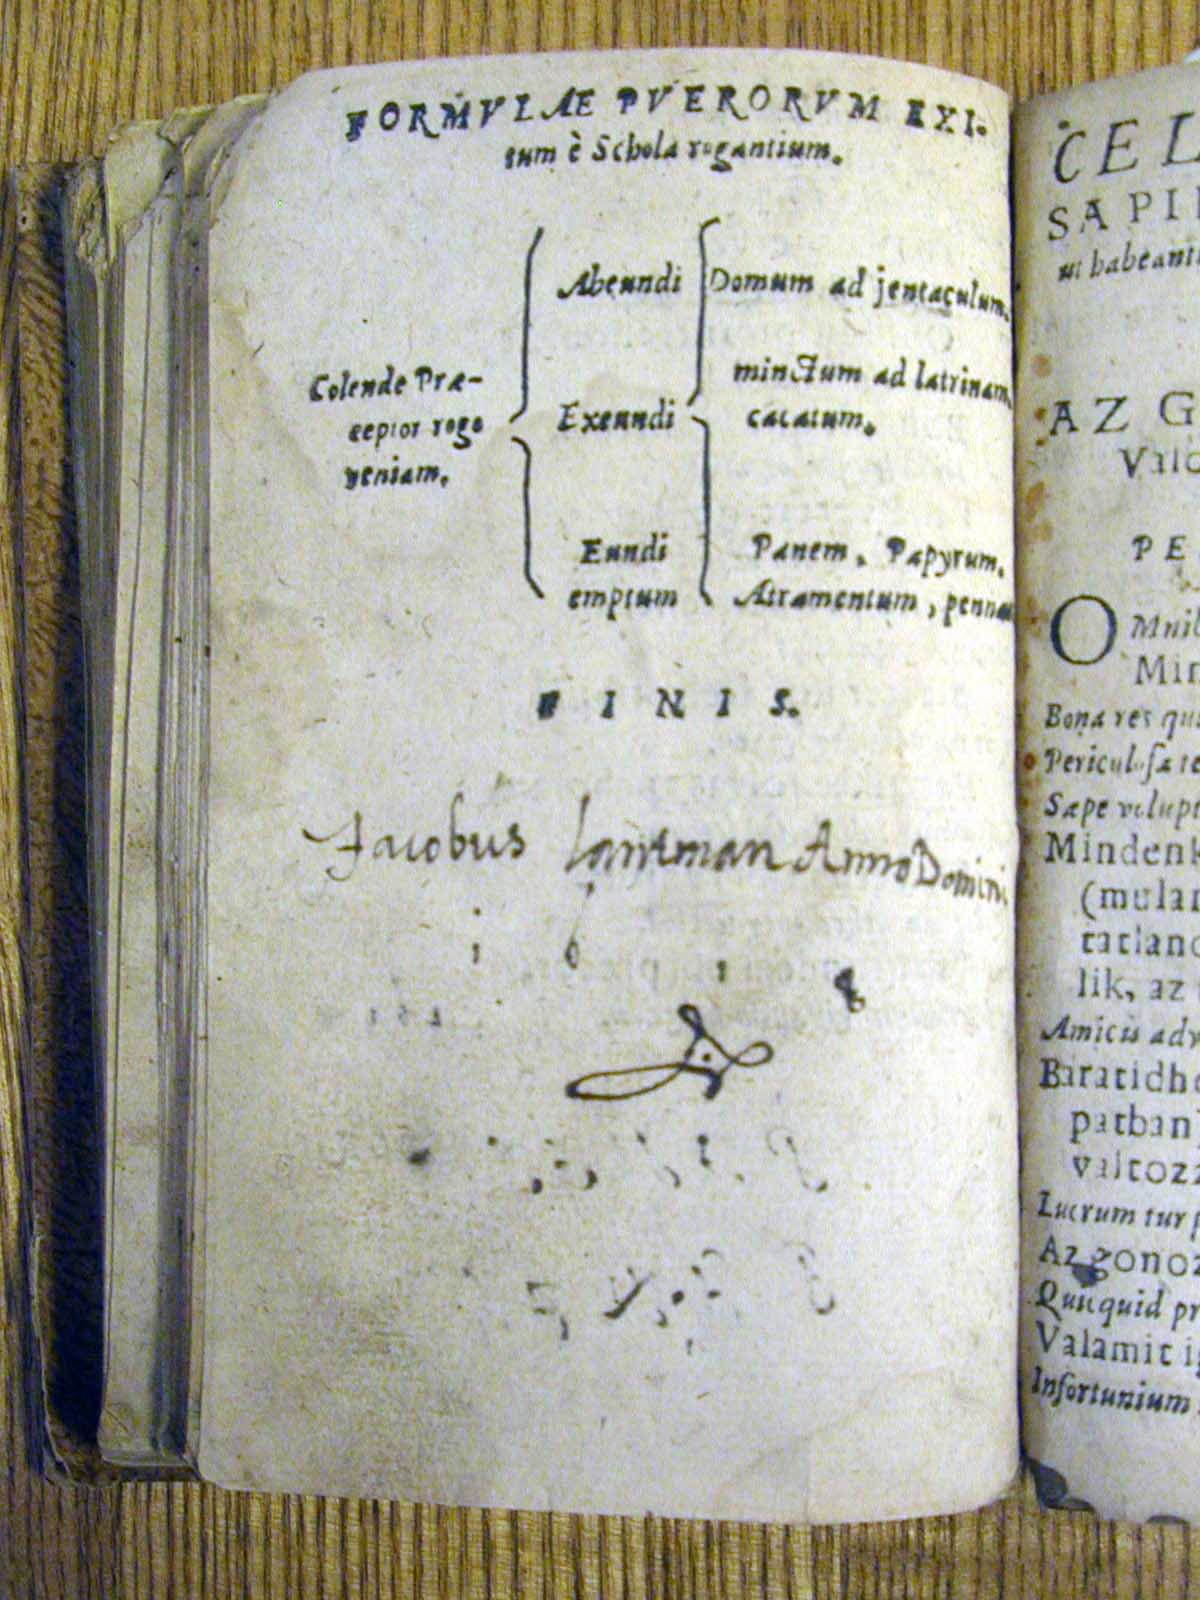 FORMVLAE PVERORVM EXI-
tum è Schola rogantium.
Abeundi
Domum ad jentaculum.
Colende Præ-
ceptor rogo
veniam.
Exeundi
minctum ad latrinam.
cacatum.
Eundi
emptum
Panem. Papyrum.
Atramentum, pennas
FINIS.
Jacobus lantman Anno Domini
1 6 1 8
CEL
SAPI
ut habeant
AZ G
Valo
PE
OMnib
Min
Bona res qu
Periculosæ te
Sæpe volupt
Mindenk
(mular
tatlano
lik, az
Amicis adv
Baratidhe
patban
valtoz
Lucrum tur
Az gonoz
Quicquid pr
Valamit ig
Infortunium